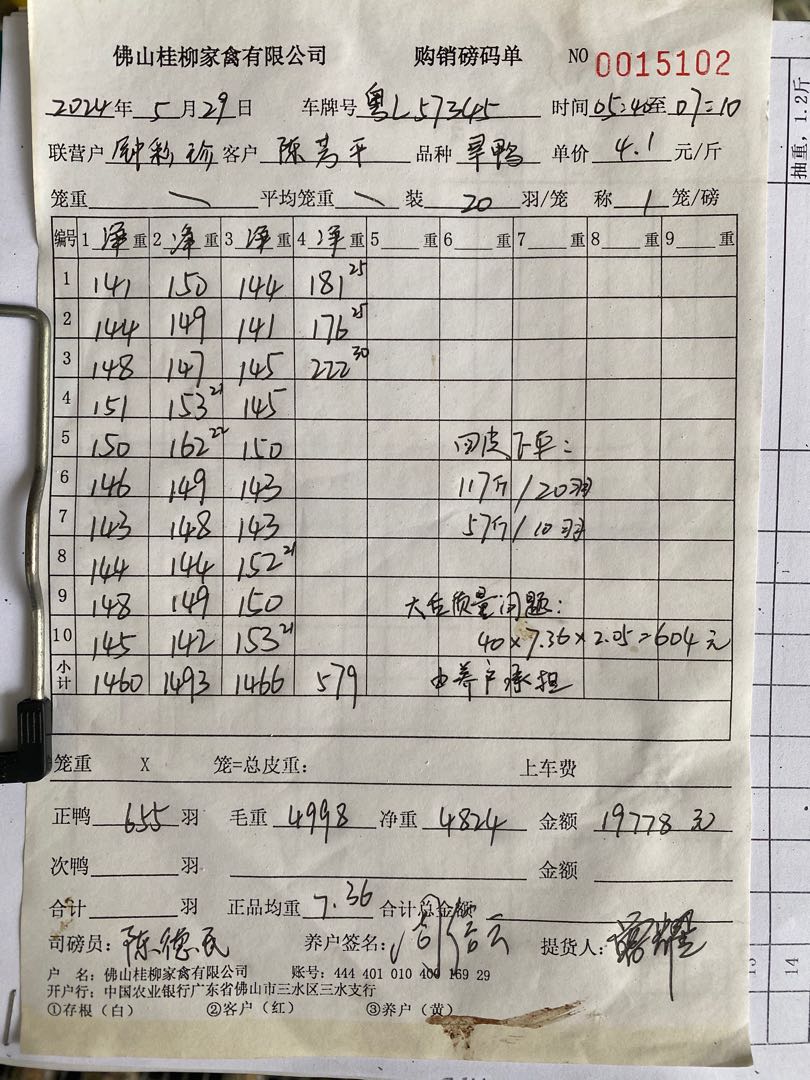 佛山桂柳家禽有限公司 购销磅码单 NO 0015102
2024年 5 月 29 日 车牌号 粤L57345 时间 05:40至 07:10
联营户 钟彩珍 客户 陈嵩平 品种 旱鸭 单价 4.1 元/斤
笼重 \ 平均笼重 \ 装 20 羽/笼 称 1 笼/磅
编号 1 净 重 2 净 重 3 净 重 4 净 重 5 重 6 重 7 重 8 重 9 重
1 141 150 144 181 25
2 144 149 141 176 25
3 148 147 145 222 30
4 151 153 21 145
5 150 162 22 150 回皮下车:
6 146 149 143 117斤/20羽
7 143 148 143 57斤/10羽
8 144 144 152 21
9 148 149 150 质量问题:
10 145 142 153 21 40×7.36×2.05=604元
小计 1460 1493 1466 579 由养户承担
笼重 X 笼=总皮重: 上车费
正鸭 655 羽 毛重 4998 净重 4824 金额 19778 元
次鸭 羽 金额
合计 羽 正品均重 7.36 合计总金额
司磅员: 陈德民 养户签名: 提货人:
户 名: 佛山桂柳家禽有限公司 账号: 444 401 010 400 169 29
开户行: 中国农业银行广东省佛山市三水区三水支行
①存根(白) ②客户(红) ③养户(黄)
抽重, 1.2斤
14